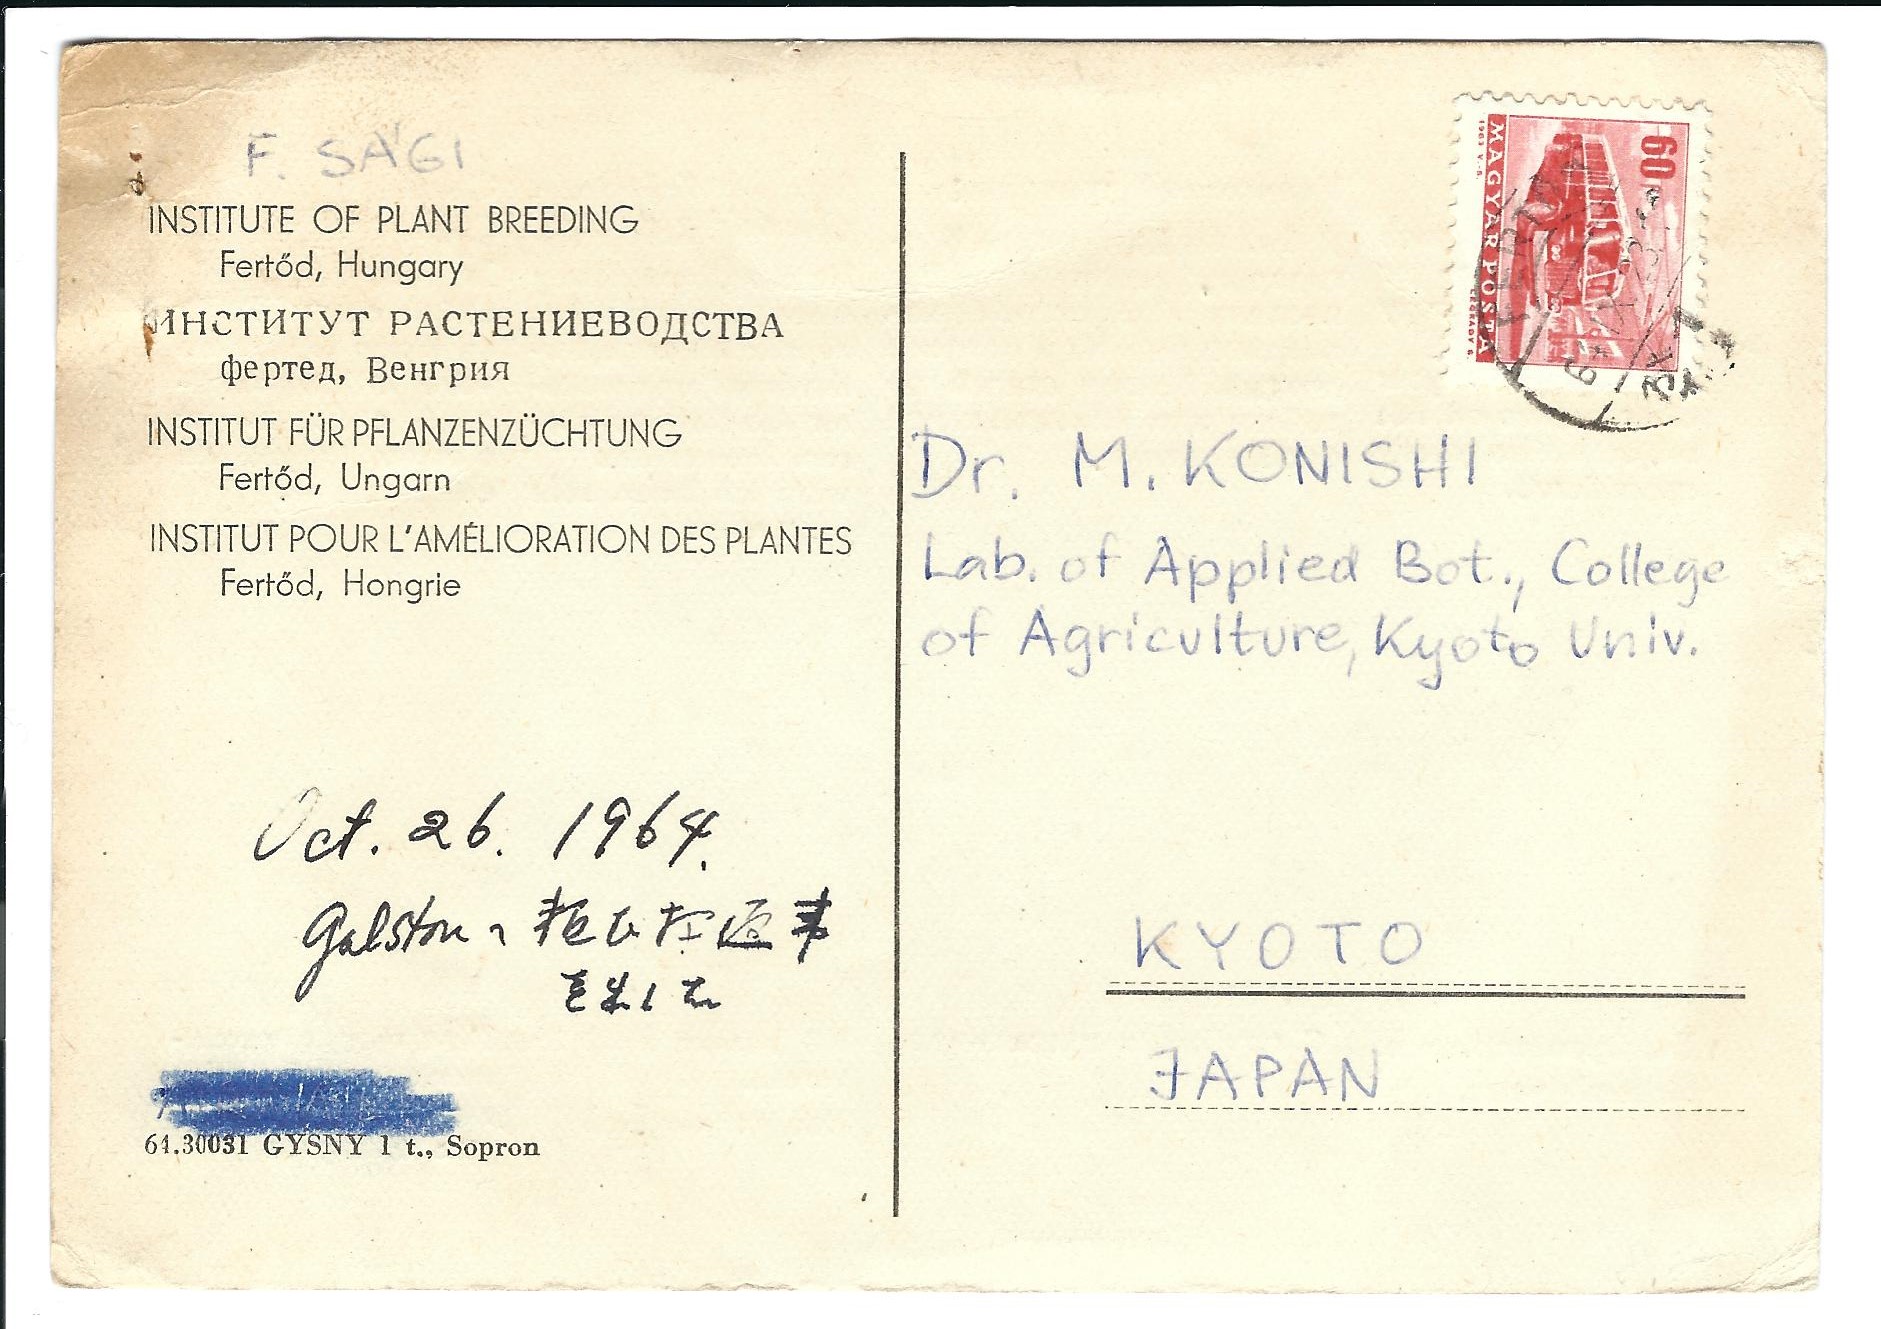 F. SÁGI
INSTITUTE OF PLANT BREEDING
Fertőd, Hungary
ИНСТИТУТ РАСТЕНИЕВОДСТВА
фертед, Венгрия
INSTITUT FÜR PFLANZENZÜCHTUNG
Fertőd, Ungarn
INSTITUT POUR L'AMÉLIORATION DES PLANTES
Fertőd, Hongrie
Oct. 26. 1964.
Galston
64.30031 GYSNY 1 t., Sopron
60
MAGYAR POSTA
Dr. M. KONISHI
Lab. of Applied Bot., College
of Agriculture, Kyoto Univ.
KYOTO
JAPAN